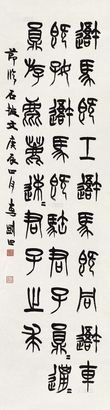 避車既工避馬既同避車
既好避馬既駓君子員邋
員斿麀鹿速速君子之求
節臨石鼓文庚辰四月